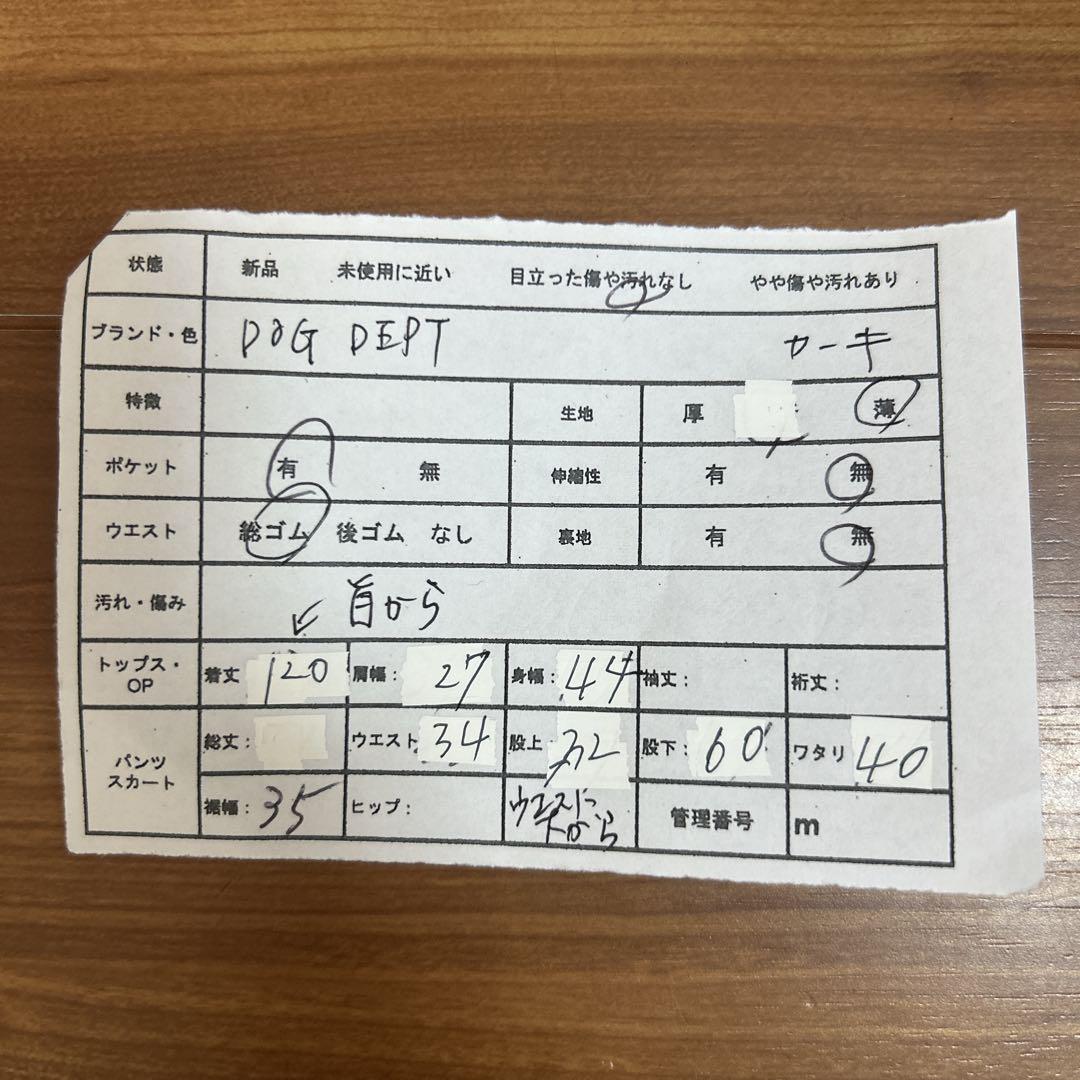 状態 新品 未使用に近い 目立った傷や汚れなし やや傷や汚れあり
ブランド・色 DOG DEPT カーキ
特徴 生地 厚 薄
ポケット 有 無 伸縮性 有 無
ウエスト 総ゴム 後ゴム なし 裏地 有 無
汚れ・傷み 首から
トップス・OP 着丈 120 肩幅: 27 身幅: 44 袖丈: 裄丈:
パンツ スカート 総丈: ウエスト 34 股上 32 股下: 60 ワタリ 40
裾幅: 35 ヒップ: ウエスト 管理番号 m